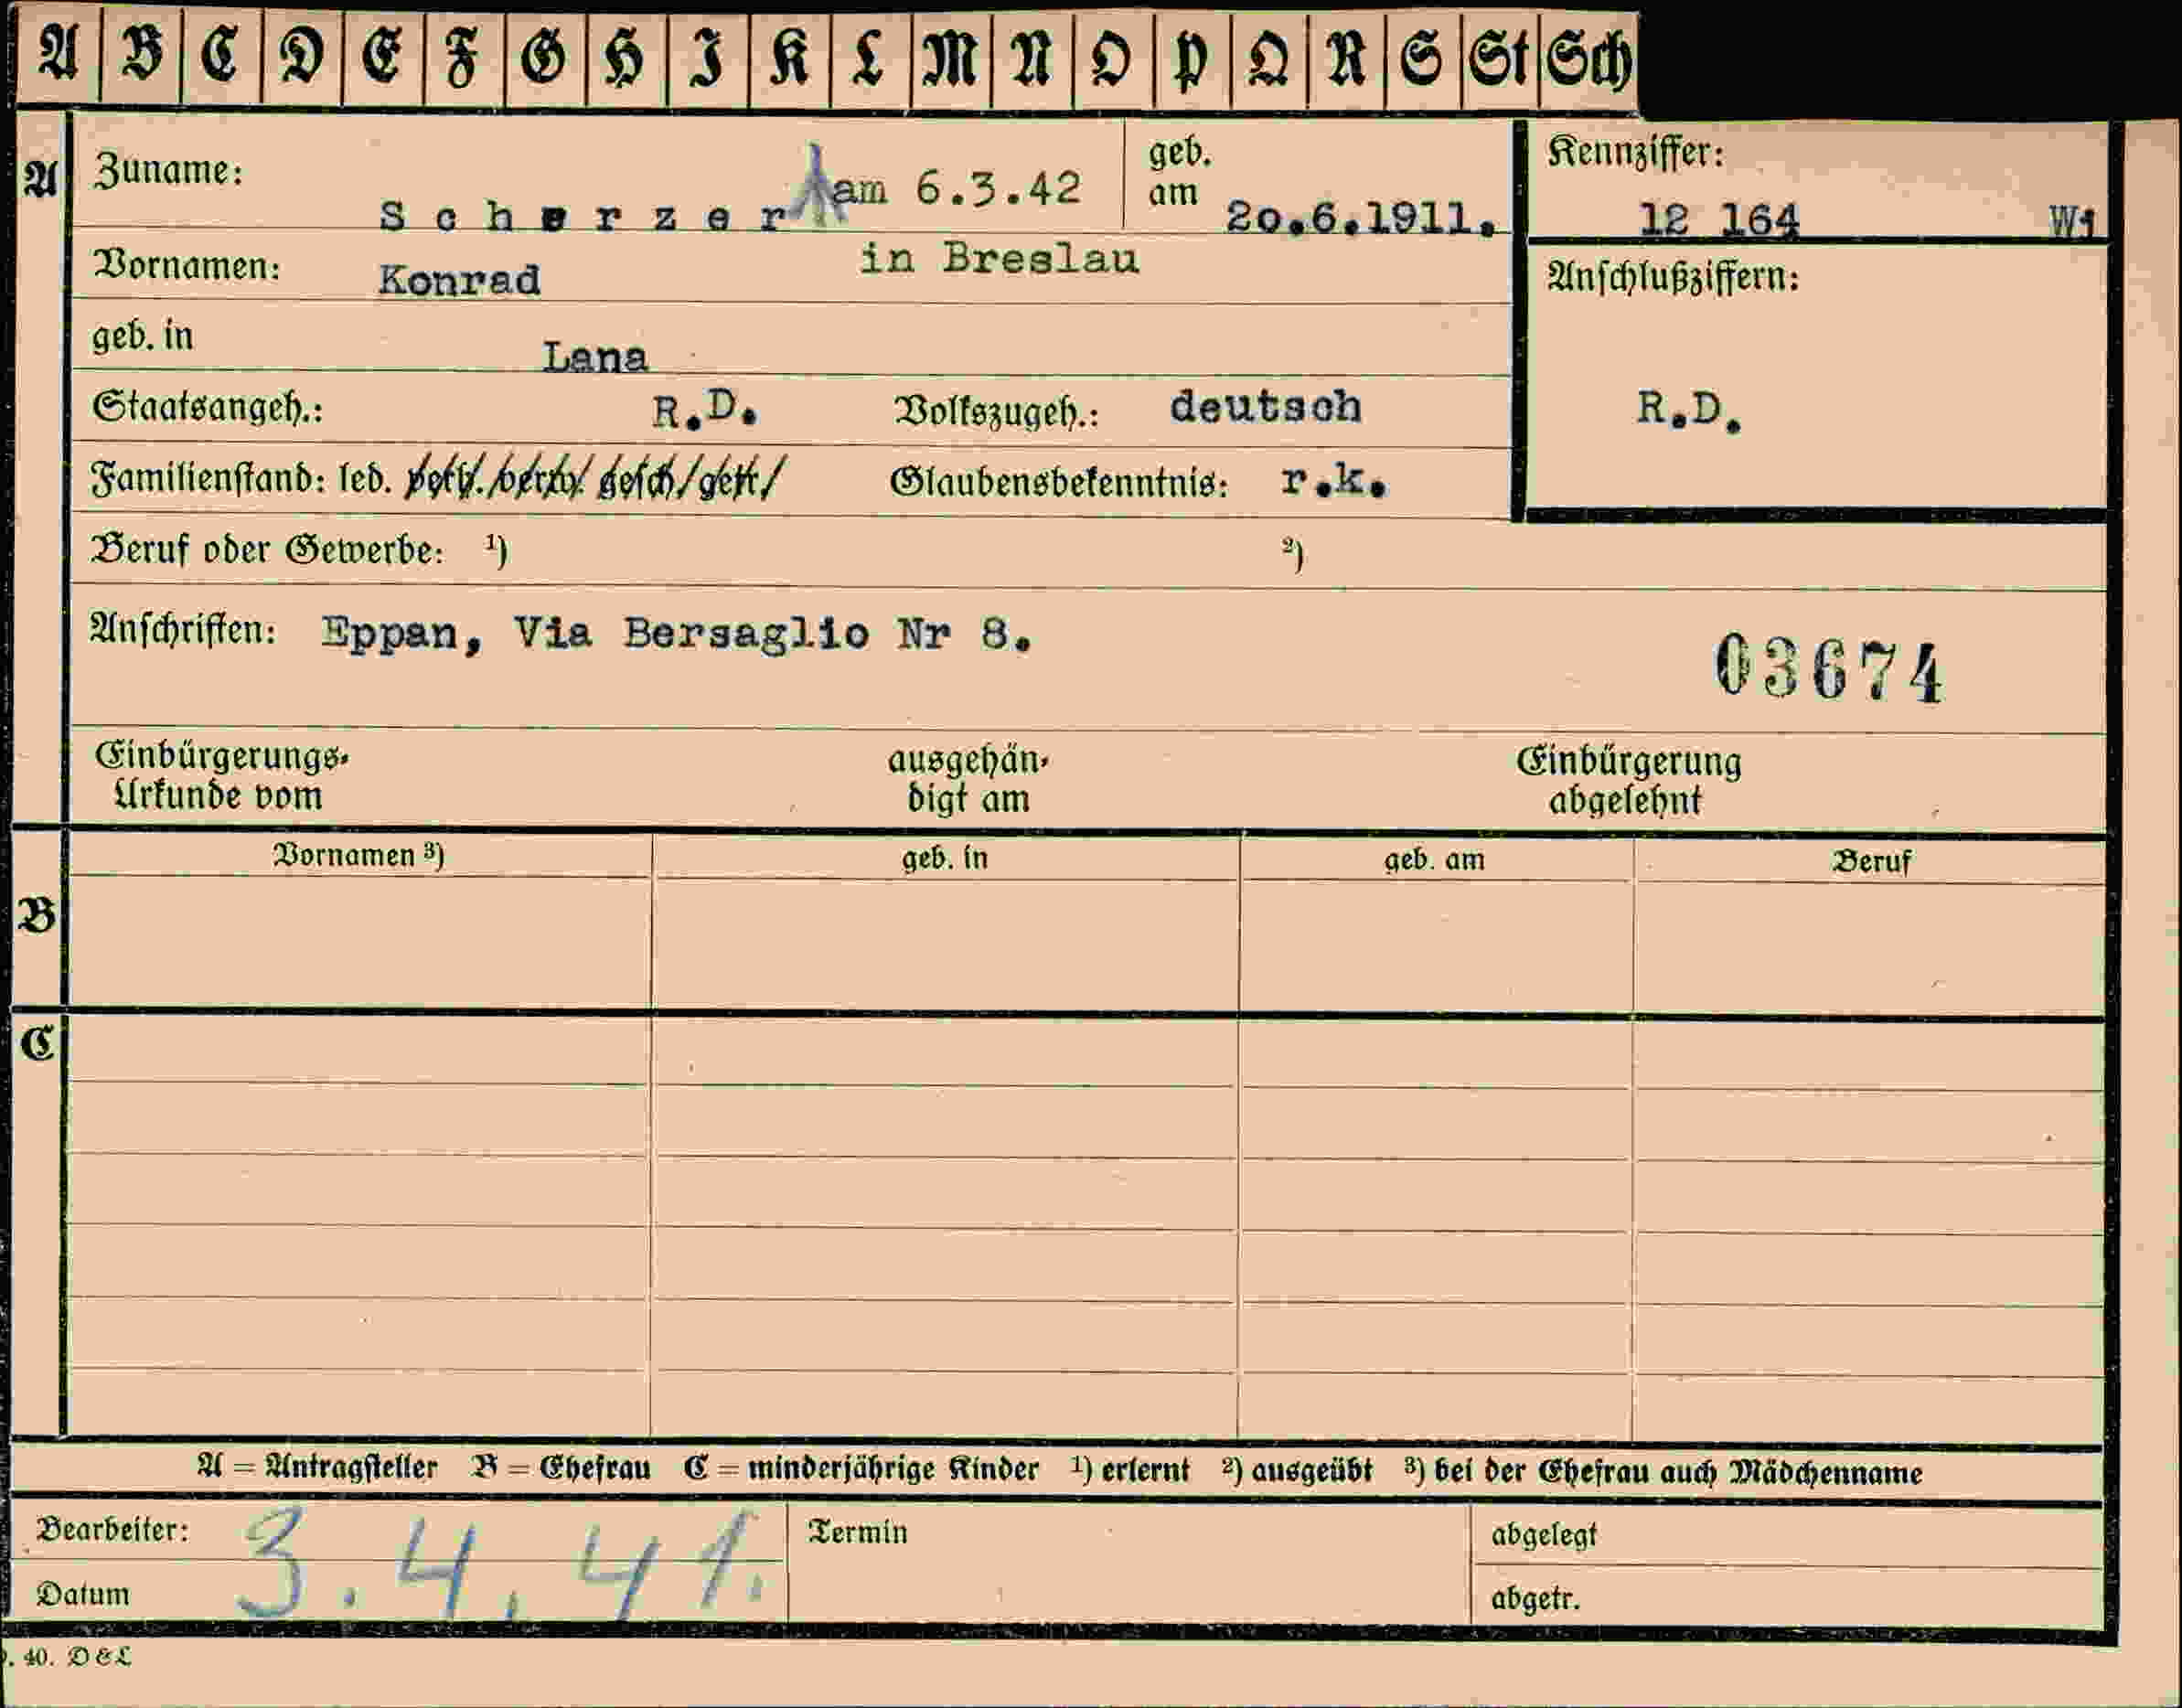 A B C D E F G H I K L M N O P Q R S St Sch
A
Zuname: Scherzer am 6.3.42
geb. am 20.6.1911.
Kennziffer:
12 164 W1
Vornamen: Konrad in Breslau
Anschlußziffern:
geb. in Lana
Staatsangeh.: R.D. Volkszugeh.: deutsch R.D.
Familienstand: led. verh. verw. gesch. getr. Glaubensbekenntnis: r.k.
Beruf oder Gewerbe: ¹) ²)
Anschriften: Eppan, Via Bersaglio Nr 8.
03674
Einbürgerungs-
Urkunde vom
ausgehän-
digt am
Einbürgerung
abgelehnt
Vornamen ³) geb. in geb. am Beruf
B
C
A = Antragsteller B = Ehefrau C = minderjährige Kinder ¹) erlernt ²) ausgeübt ³) bei der Ehefrau auch Mädchenname
Bearbeiter: Termin abgelegt
3.4.41.
Datum abgetr.
. 40. D & L